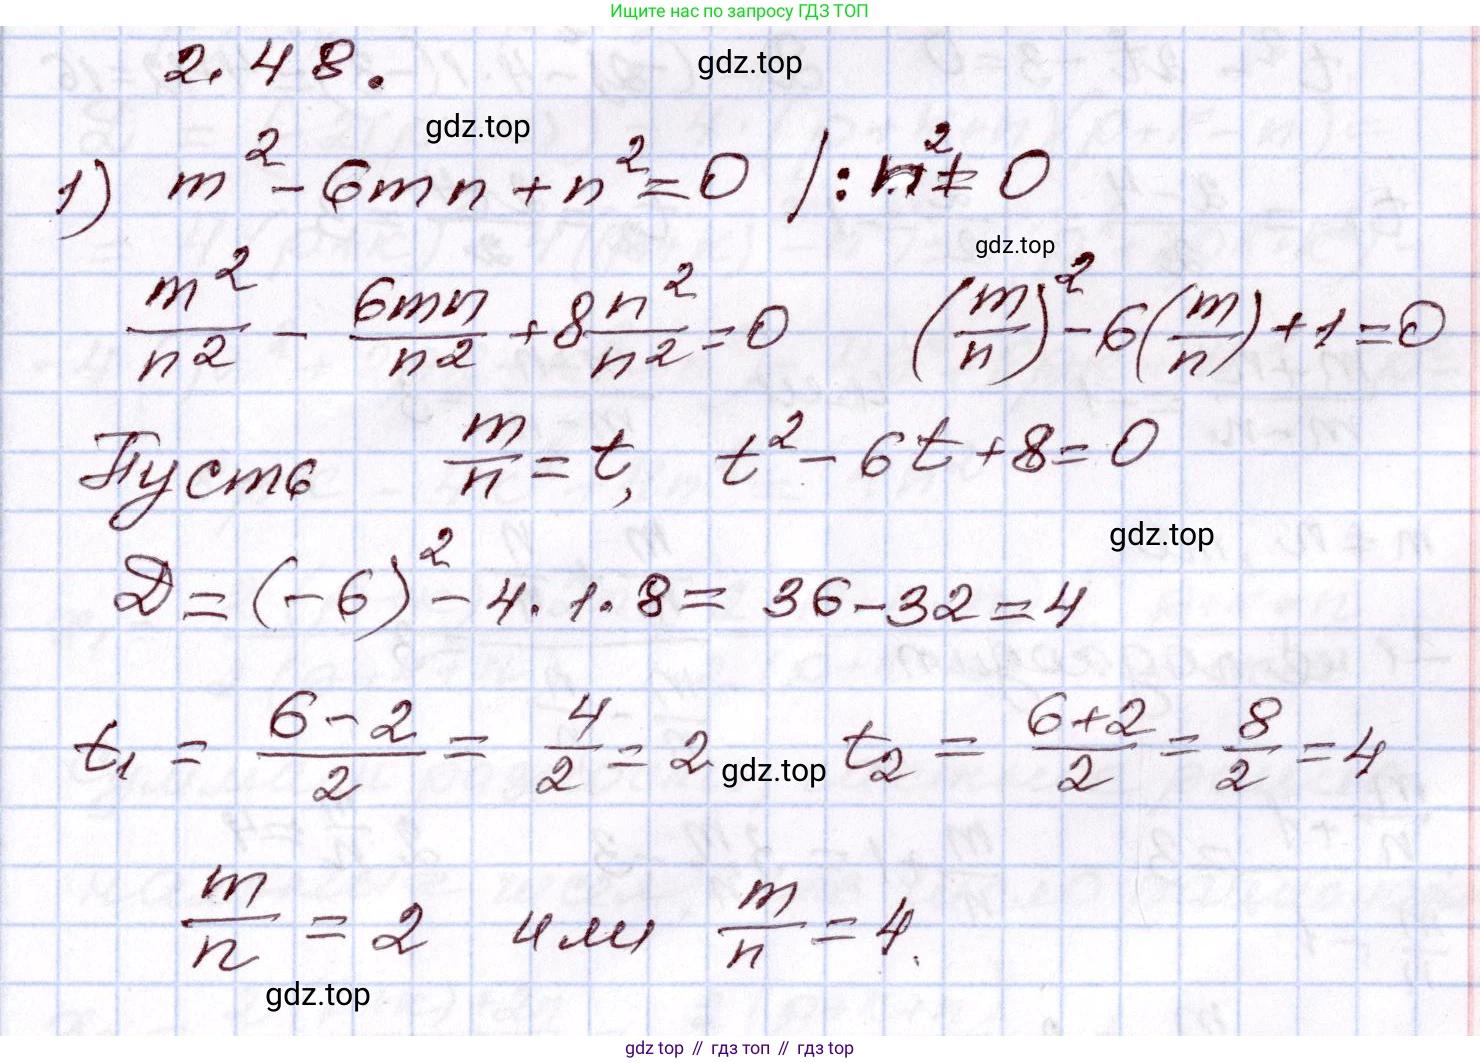 Ищите нас по запросу ГДЗ ТОП
2.48.
gdz.top
gdz.top
1) m² - 6mn + n² = 0 / : n² ≠ 0
gdz.top
m²/n² - 6mn/n² + 8n²/n² = 0 (m/n)² - 6(m/n) + 1 = 0
Пусть m/n = t, t² - 6t + 8 = 0
gdz.top
D = (-6)² - 4·1·8 = 36 - 32 = 4
t₁ = (6-2)/2 = 4/2 = 2 gdz.top t₂ = (6+2)/2 = 8/2 = 4
m/n = 2 или m/n = 4.
gdz.top
gdz top // гдз топ // gdz top